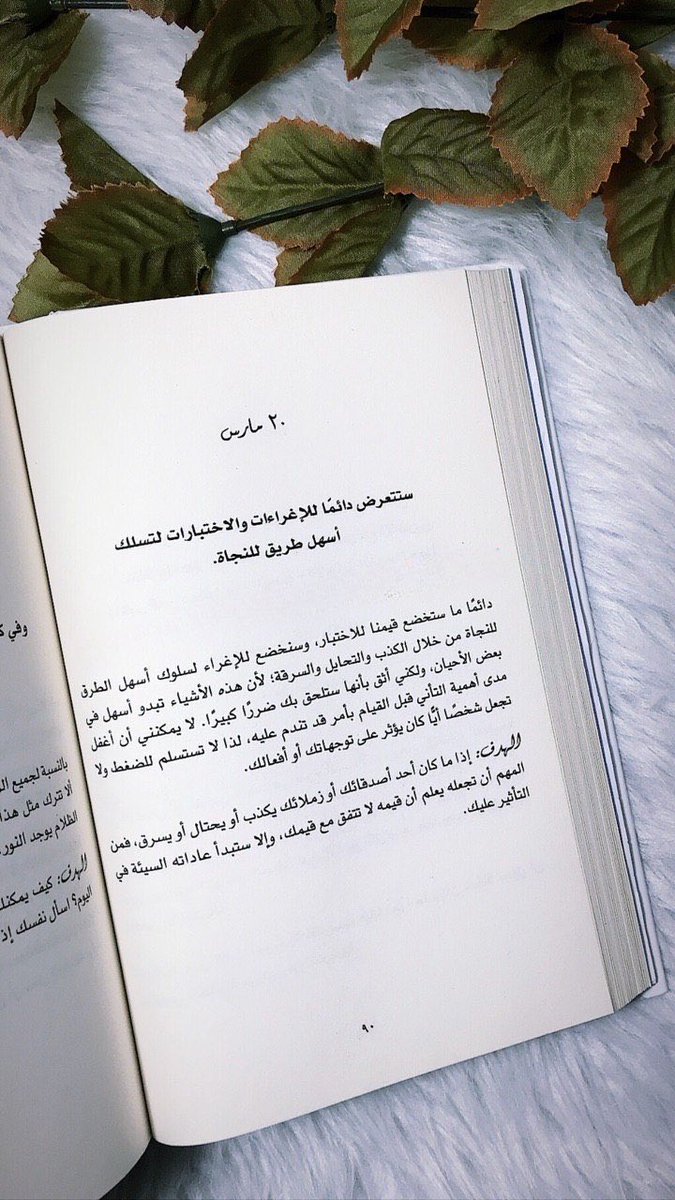 ٢٠ مارس
ستتعرض دائمًا للإغراءات والاختبارات لتسلك
أسهل طريق للنجاة.
دائمًا ما ستخضع قيمنا للاختبار، وسنخضع للإغراء لسلوك أسهل الطرق
للنجاة من خلال الكذب والتحايل والسرقة؛ لأن هذه الأشياء تبدو أسهل في
بعض الأحيان، ولكني أثق بأنها ستلحق بك ضررًا كبيرًا. لا يمكنني أن أغفل
مدى أهمية التأني قبل القيام بأمر قد تندم عليه، لذا لا تستسلم للضغط ولا
تجعل شخصًا أيًّا كان يؤثر على توجهاتك أو أفعالك.
الهدف: إذا ما كان أحد أصدقائك أو زملائك يكذب أو يحتال أو يسرق، فمن
المهم أن تجعله يعلم أن قيمه لا تتفق مع قيمك، وإلا ستبدأ عاداته السيئة في
التأثير عليك.
٩٠
وفي
بالنسبة لجميع
ألا تترك مثل هذا
الظلام يوجد النور
الهدف: كيف يمكنك
اليوم؟ اسأل نفسك إذ